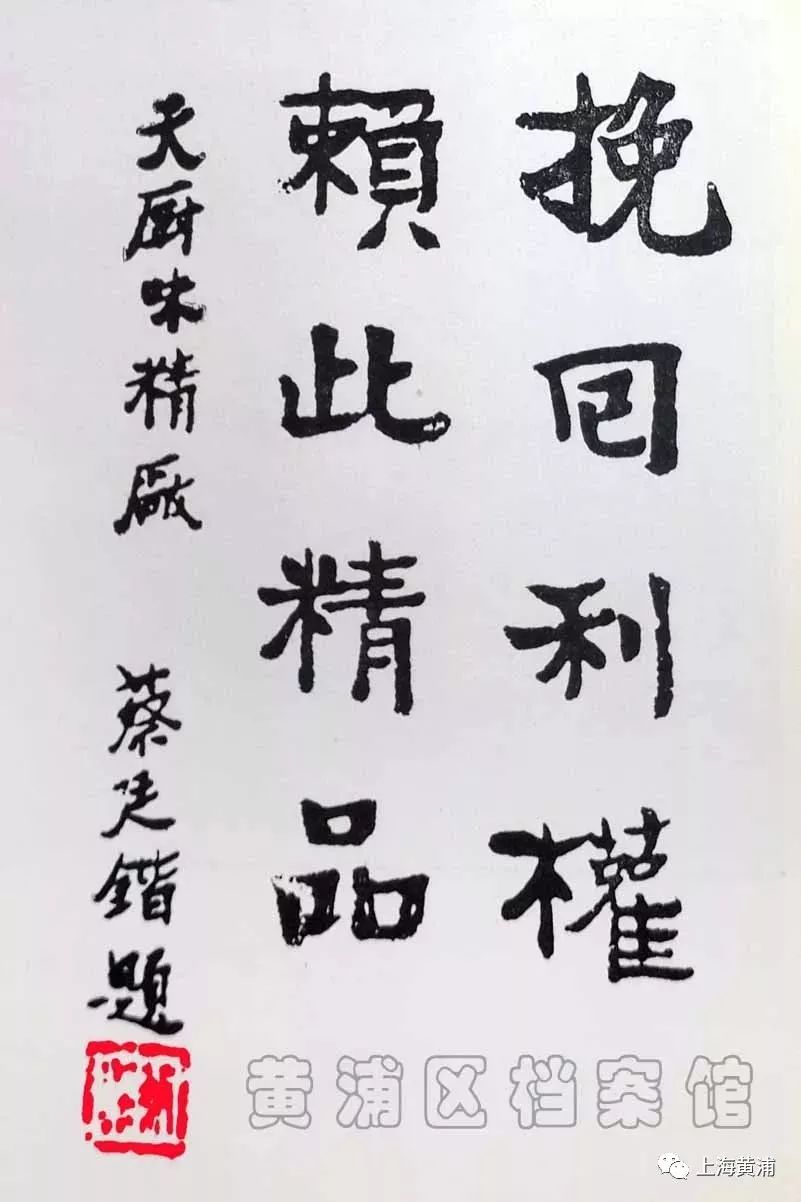 挽回利權
賴此精品
天厨味精廠
蔡廷鍇題
黄浦区档案馆
上海黄浦